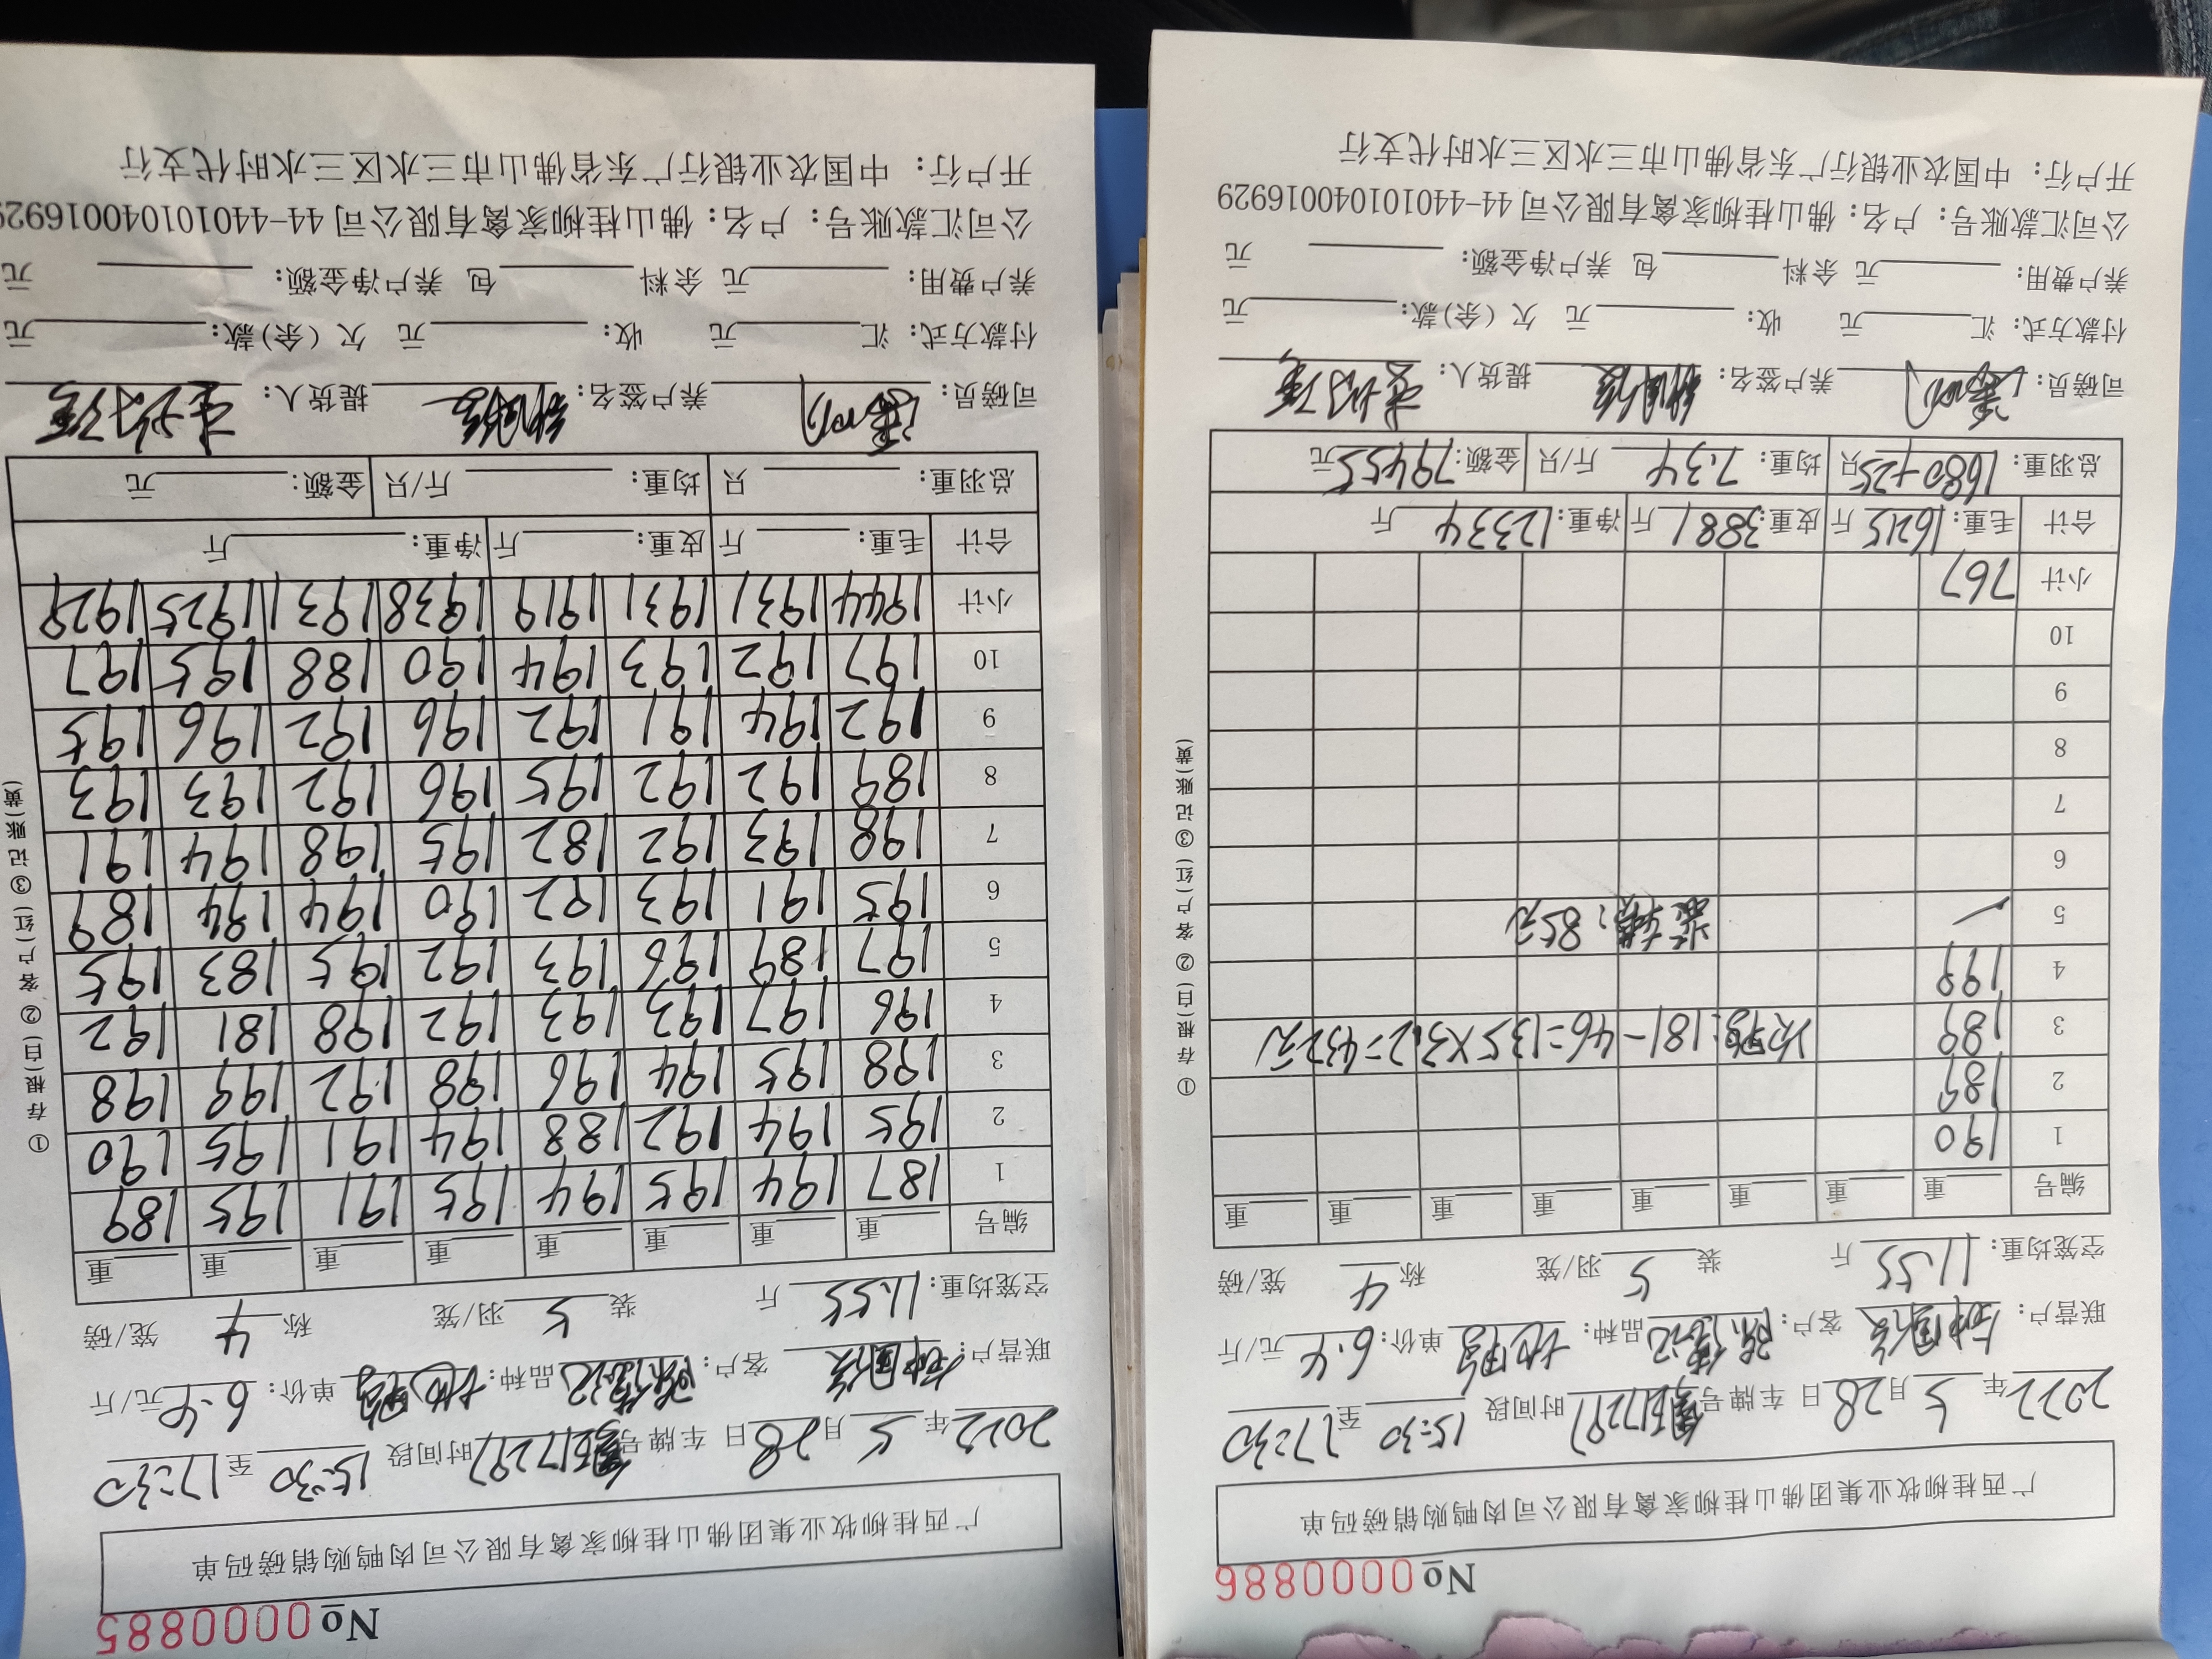 No 0000886
广西桂柳牧业集团佛山桂柳家禽有限公司肉鸭购销磅码单
2022年 5月28日 车牌号 17297 时间段 15:30 至 17:30
联营户: 客户: 品种: 单价: 6.4 元/斤
空笼均重: 11.55 斤 装 5 羽/笼 称 4 笼/磅
编号 重 重 重 重 重 重 重 重
1 190
2 189
3 189 次鸭:181-46=135×3.2=432元
4 199
5 85元
6
7
8
9
10
小计 767
合计 毛重: 16215 斤 皮重: 3881 斤 净重: 12334 斤
总羽重: 1680+25 只 均重: 7.34 斤/只 金额: 79455 元
司磅员: 养户签名: 提货人:
付款方式: 汇 元 收: 元 欠(余)款: 元
养户费用: 元 余料 包 养户净金额: 元
公司汇款账号: 户名: 佛山桂柳家禽有限公司 44-440101040016929
开户行: 中国农业银行广东省佛山市三水区三水时代支行
①存根(白) ②客户(红) ③记账(黄)
No 0000885
广西桂柳牧业集团佛山桂柳家禽有限公司肉鸭购销磅码单
2022年 5月28日 车牌号 17297 时间段 15:30 至 17:30
联营户: 客户: 品种: 单价: 6.4 元/斤
空笼均重: 11.55 斤 装 5 羽/笼 称 4 笼/磅
编号 重 重 重 重 重 重 重 重
1 187 194 195 194 195 191 195 189
2 195 194 192 188 194 191 195 190
3 198 195 194 196 198 192 199 198
4 196 197 193 193 192 198 181 192
5 197 189 196 193 192 195 183 195
6 195 191 193 192 190 194 194 189
7 198 193 192 182 195 198 194 191
8 189 192 192 195 196 192 193 193
9 192 194 191 192 196 192 196 195
10 197 192 193 194 190 188 195 197
小计 1944 1931 1931 1919 1938 1931 1925 1929
合计 毛重: 斤 皮重: 斤 净重: 斤
总羽重: 只 均重: 斤/只 金额: 元
司磅员: 养户签名: 提货人:
付款方式: 汇 元 收: 元 欠(余)款: 元
养户费用: 元 余料 包 养户净金额: 元
公司汇款账号: 户名: 佛山桂柳家禽有限公司 44-440101040016929
开户行: 中国农业银行广东省佛山市三水区三水时代支行
①存根(白) ②客户(红) ③记账(黄)